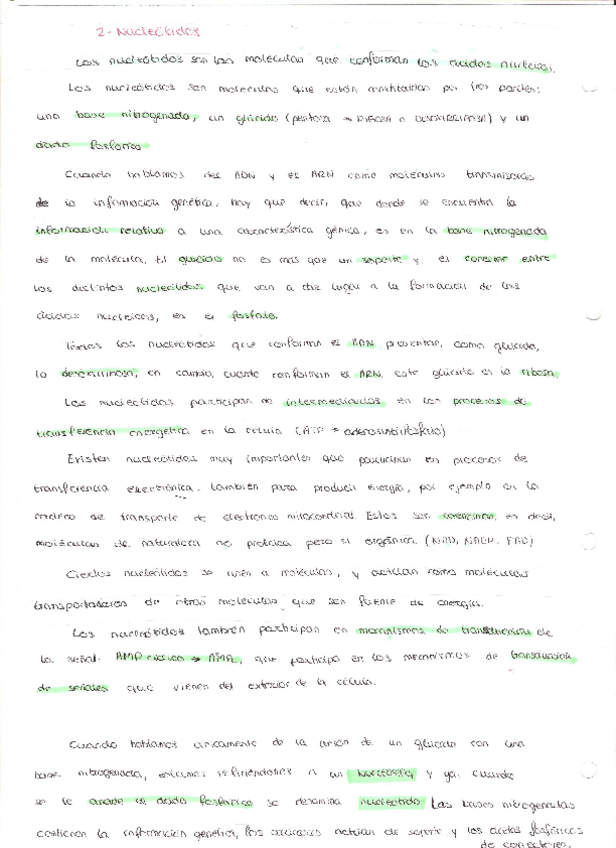 2- Nucleótidos
Los nucleótidos son las moléculas que conforman los ácidos nucleicos.
Los nucleótidos son moléculas que están constituidas por tres partes:
una base nitrogenada, un glúcido (pentosa → RIBOSA o DESOXIRRIBOSA) y un
ácido fosfórico
Cuando hablamos del ADN y el ARN como moléculas transmisoras
de la información genética, hay que decir, que donde se encuentra la
información relativa a una característica génica, es en la base nitrogenada
de la molécula. El glúcido no es más que un soporte y el conector entre
los distintos nucleótidos que van a dar lugar a la formación de los
ácidos nucleicos, es el fosfato.
Todos los nucleótidos que conforman el ADN presentan, como glúcido,
la desoxirribosa, en cambio, cuando conforman el ARN este glúcido es la ribosa.
Los nucleótidos participan de intermediarios en los procesos de
transferencia energética en la célula (ATP → adenosintrifosfato)
Existen nucleótidos muy importantes que participan en procesos de
transferencia electrónica. También para producir energía, por ejemplo en la
cadena de transporte de electrones mitocondrial. Estos son coenzimas, es decir,
moléculas de naturaleza no proteica pero sí orgánica (NAD, NADP, FAD)
Ciertos nucleótidos se unen a moléculas, y actúan como moléculas
transportadoras de otras moléculas que son fuente de energía.
Los nucleótidos también participan en mecanismos de transducción de
la señal. AMP cíclico → AMPc, que participa en los mecanismos de transducción
de señales que vienen del exterior de la célula.
Cuando hablamos únicamente de la unión de un glúcido con una
base nitrogenada, estamos refiriéndonos a un nucleósido y ya cuando
se le añade el ácido fosfórico se denomina nucleótido. Las bases nitrogenadas
contienen la información genética, los azúcares actúan de soporte y los ácidos fosfóricos
de conectores.